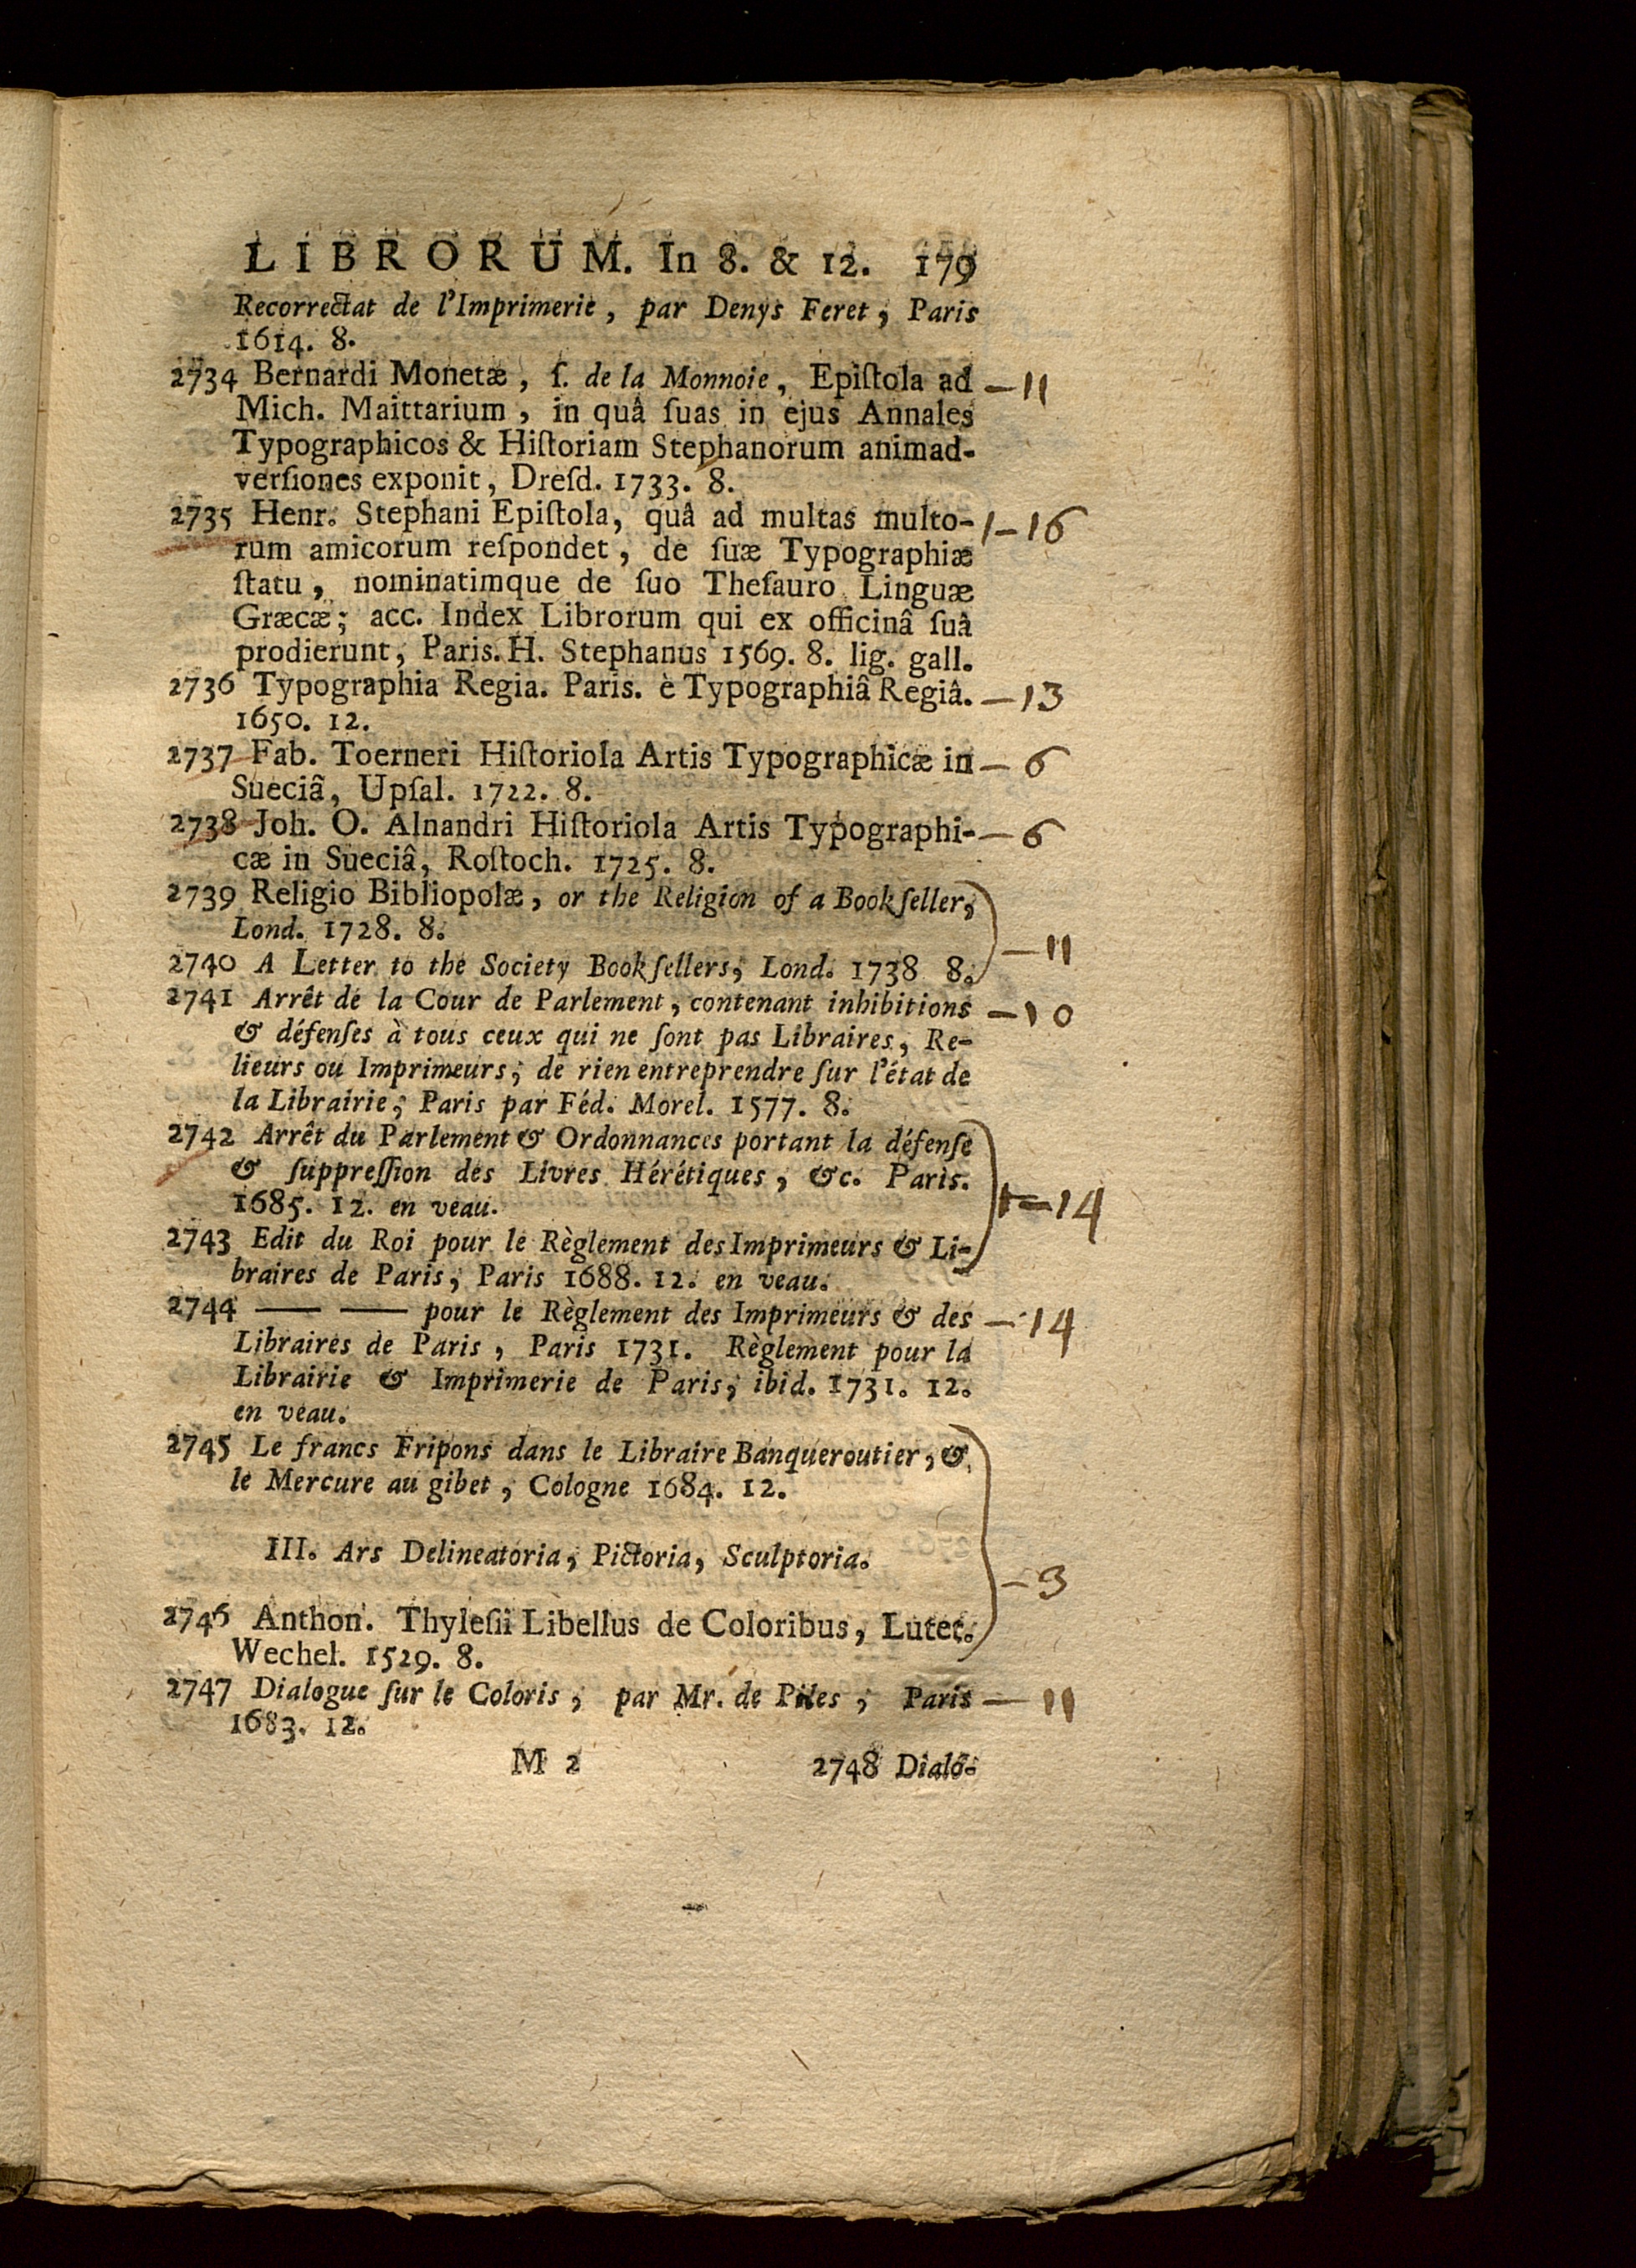 LIBRORUM. In 8. & 12. 179
Recorrectat de l'Imprimerie, par Denys Feret, Paris
1614. 8.
2734 Bernardi Monetæ, ſ. de la Monnoie, Epiſtola ad — 11
Mich. Maittarium, in quâ ſuas in ejus Annales
Typographicos & Hiſtoriam Stephanorum animad-
verſiones exponit, Dreſd. 1733. 8.
2735 Henr. Stephani Epiſtola, quâ ad multas multo- 1—16
rum amicorum reſpondet, de ſuæ Typographiæ
ſtatu, nominatimque de ſuo Theſauro Linguæ
Græcæ; acc. Index Librorum qui ex officinâ ſuâ
prodierunt, Paris. H. Stephanus 1569. 8. lig. gall.
2736 Typographia Regia. Paris. è Typographiâ Regiâ. — 13
1650. 12.
2737 Fab. Toerneri Hiſtoriola Artis Typographicæ in — 6
Sueciâ, Upſal. 1722. 8.
2738 Joh. O. Alnandri Hiſtoriola Artis Typographi- — 6
cæ in Sueciâ, Roſtoch. 1725. 8.
2739 Religio Bibliopolæ, or the Religion of a Bookſeller,
Lond. 1728. 8.
— 11
2740 A Letter to the Society Bookſellers, Lond. 1738 8.
2741 Arrêt de la Cour de Parlement, contenant inhibitions — 10
& défenſes à tous ceux qui ne ſont pas Libraires, Re-
lieurs ou Imprimeurs, de rien entreprendre ſur l'état de
la Librairie, Paris par Féd. Morel. 1577. 8.
2742 Arrêt du Parlement & Ordonnances portant la défenſe
& ſuppreſſion des Livres Hérétiques, &c. Paris.
1685. 12. en veau. 1—14
2743 Edit du Roi pour le Règlement des Imprimeurs & Li-
braires de Paris, Paris 1688. 12. en veau.
2744 —— —— pour le Règlement des Imprimeurs & des — 14
Libraires de Paris, Paris 1731. Règlement pour la
Librairie & Imprimerie de Paris, ibid. 1731. 12.
en veau.
2745 Le francs Fripons dans le Libraire Banqueroutier, &
le Mercure au gibet, Cologne 1684. 12.
III. Ars Delineatoria, Pictoria, Sculptoria.
— 3
2746 Anthon. Thyleſii Libellus de Coloribus, Lutet.
Wechel. 1529. 8.
2747 Dialogue ſur le Coloris, par Mr. de Piles, Paris — 11
1683. 12.
M 2 2748 Dialo-